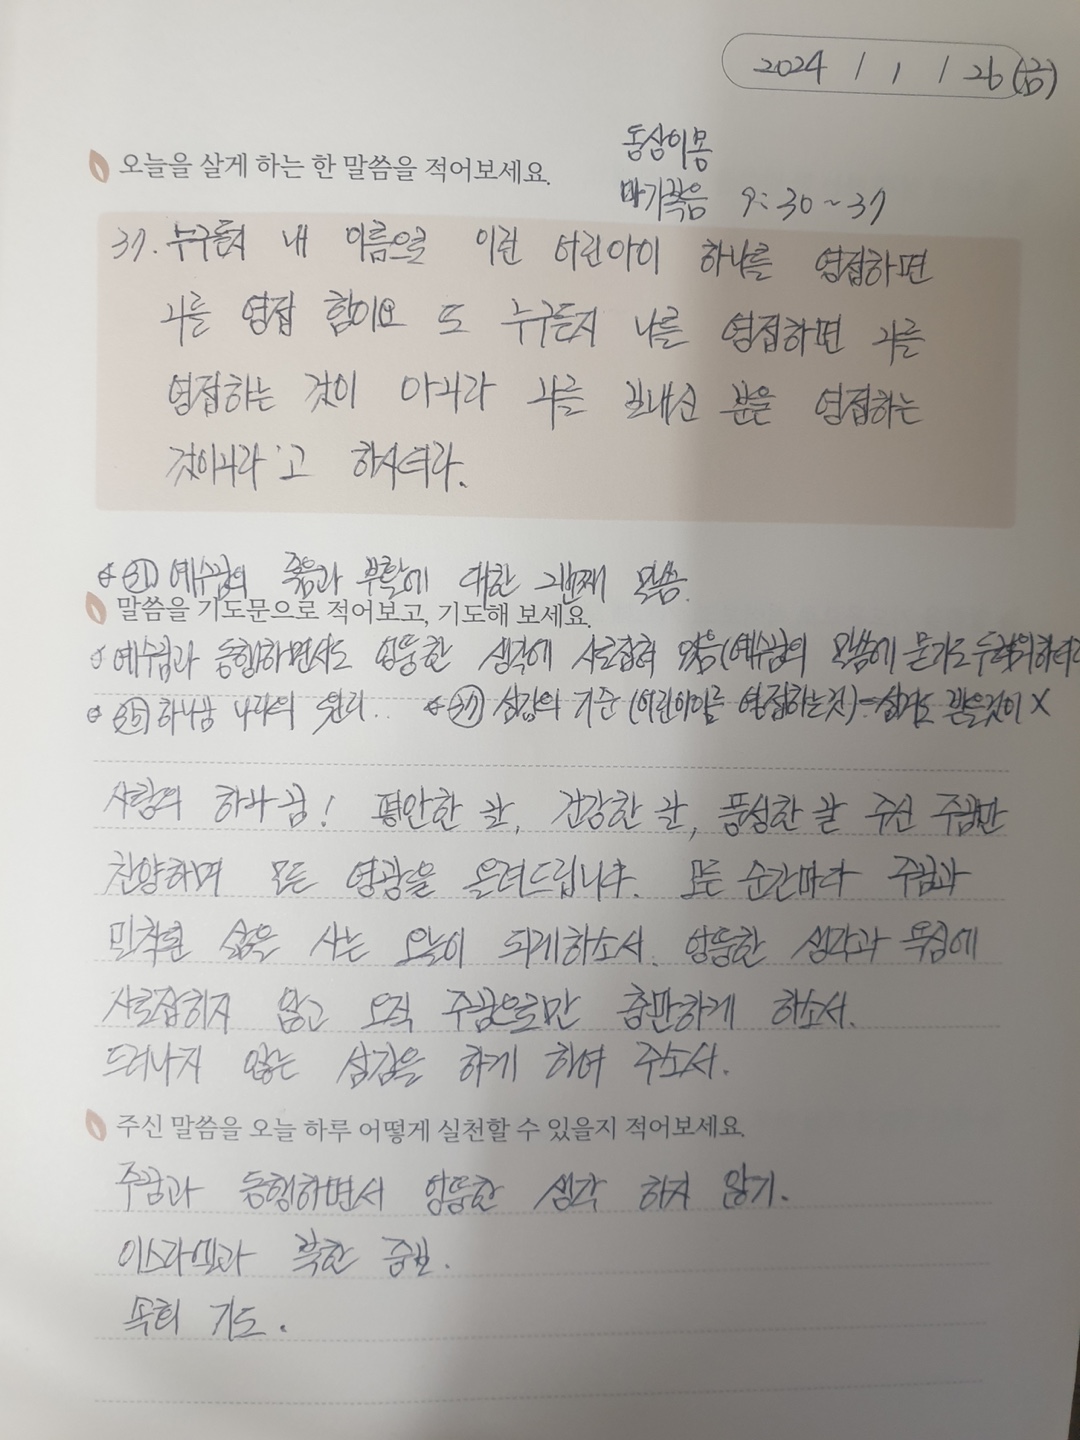 2024 / 1 / 26 (금)
동상이몽
오늘을 살게 하는 한 말씀을 적어보세요.
마가복음 9:30~37
37. 누구든지 내 이름으로 이런 어린아이 하나를 영접하면
나를 영접 함이요 또 누구든지 나를 영접하면 나를
영접하는 것이 아니라 나를 보내신 분을 영접하는
것이니라'고 하시더라.
예수님의 죽음과 부활에 대한 2번째 말씀.
말씀을 기도문으로 적어보고, 기도해 보세요.
예수님과 동행하면서도 엉뚱한 생각에 사로잡혀 있음(예수님의 말씀에 묻기도 두려워하더라
㉟ 하나님 나라의 원리.. ㊲ 섬김의 기준 (어린아이를 영접하는것) 섬겨도 받을것이 X
사랑의 하나님! 평안한 날, 건강한 날, 풍성한 날 주신 주님만
찬양하며 모든 영광을 올려드립니다. 모든 순간마다 주님과
밀착된 삶을 사는 오늘이 되게하소서. 엉뚱한 생각과 욕심에
사로잡히지 않고 오직 주님으로만 충만하게 하소서.
드러나지 않는 섬김을 하게 하여 주소서.
주신 말씀을 오늘 하루 어떻게 실천할 수 있을지 적어보세요.
주님과 동행하면서 엉뚱한 생각 하지 않기.
속회 기도.